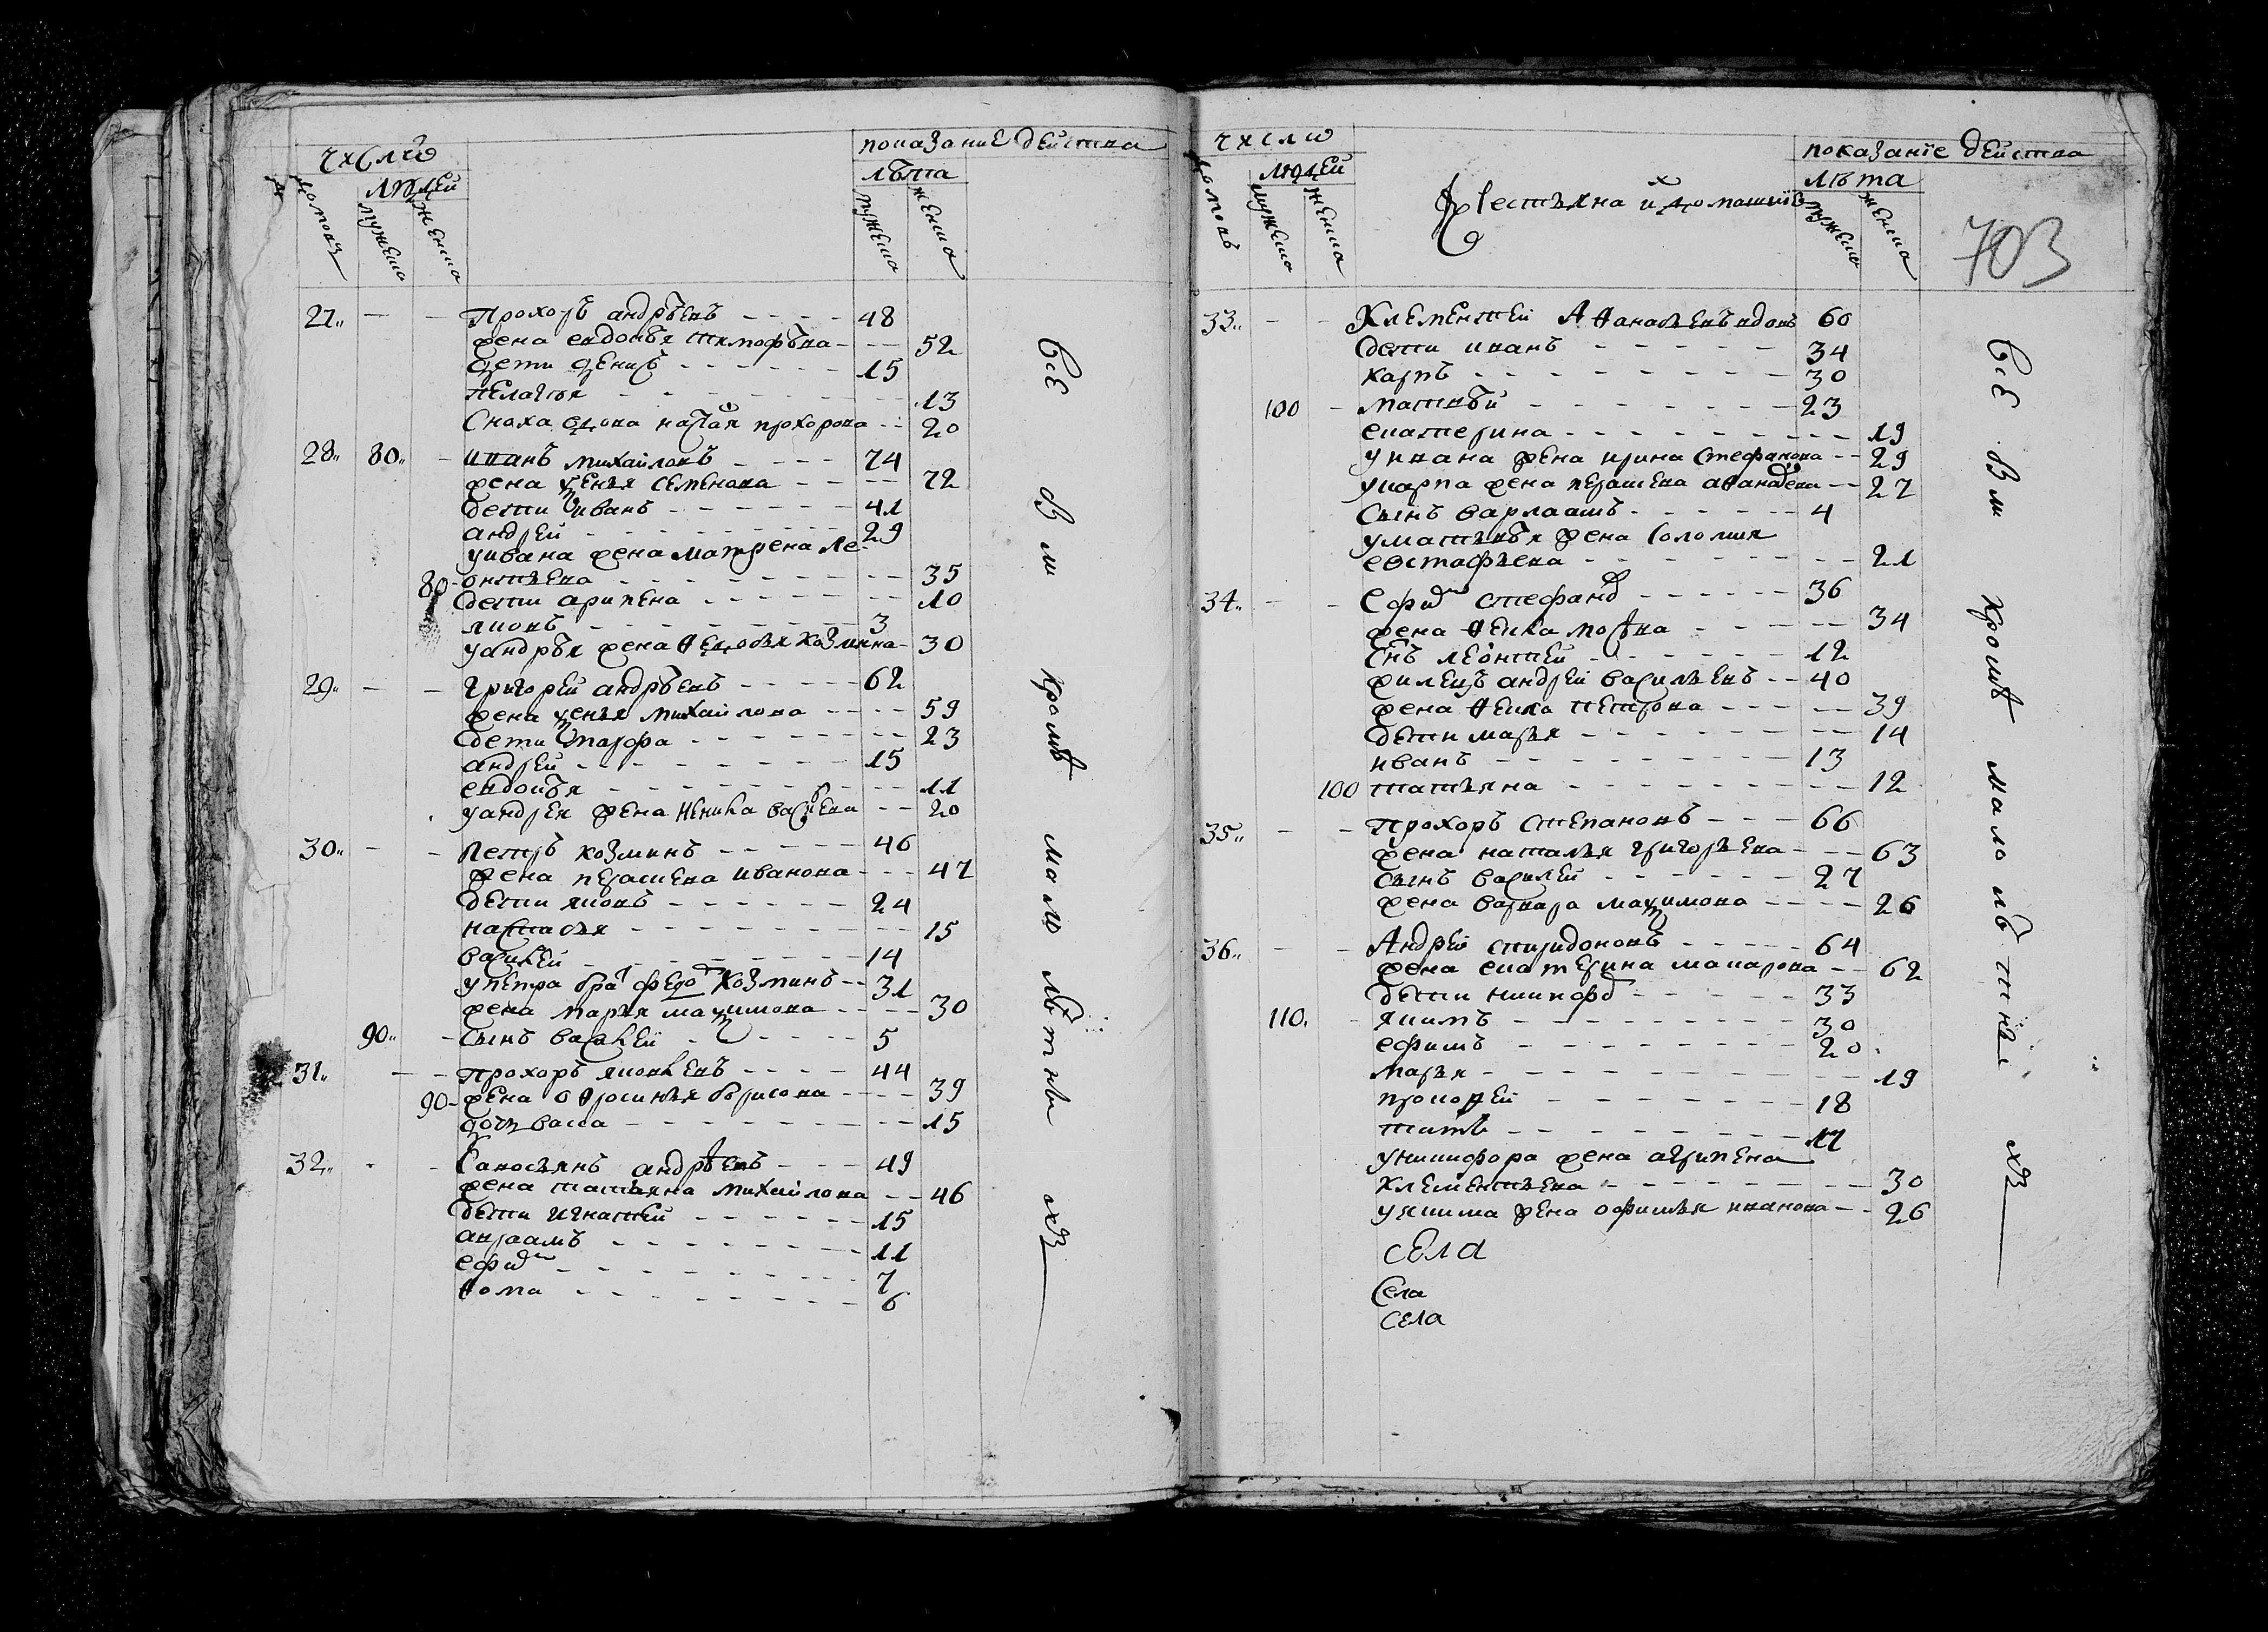 число
показание действа
людей
лѣта
домовъ
мужеска
женска
мужеска
женска
27 — — Прохоръ андрѣевъ 48
жена евдокѣя тимофѣвна 52
дети денисъ 15
пелагѣя 13
Сноха вдова прохорова 20
28 80 — иванъ михайловъ 74
жена ѯенья семенова 72
дети иванъ 41
андрей 29
уивана жена матрена ле-
80 онтьева 35
дети арипена 10
яковъ 3
уандрѣя жена ѳедосья козмина 30
29 — — григорей андрѣевъ 62
жена ѯенья михайлова 59
дети 23
андрей 15
евдокѣя 11
уандрея жена васильева 20
30 — — петръ козминъ 46
жена парасκева иванова 47
дети яковъ 24
настасья 15
василей 14
упетра братъ федоръ козминъ 31
жена марья маѯимова 30
90 — сынъ василей 5
31 — — прохоръ яковлевъ 44
90 жена борисова 39
дочь васса 15
32 — — андрѣевъ 49
жена татьяна михайлова 46
дети игнатей 15
авраамъ 11
ефимъ 7
ѳома 6
всѣ в т кромѣ мало лѣтны хъ
число
показанїе действа
людей
лѣта
домовъ
мужеска
женска
Крестьяна и домашнїих
мужеска
женска
703
33 — — Клементей Аѳанасьевъ вдовъ 60
дети иванъ 34
карпъ 30
100 — матвѣй 23
екатерина 19
уивана жена ирина стефанова 29
укарпа жена парасκева 27
Сынъ варлаамъ 4
уматвѣя жена соломия
евстафьева 21
34 — — Ефимъ стефановъ 36
жена ѳекла 34
Снъ леонтей 12
андрей васильевъ 40
жена ѳекла петрова 39
дети марья 14
иванъ 13
100 татьяна 12
35 — — прохоръ степановъ 66
жена наталья григорьева 63
сынъ василей 27
жена варвара маѯимова 26
36 — — Андрей спиридоновъ 64
жена екатерина макарова 62
дети никифоръ 33
110 — якимъ 30
ефимъ 20
марья 19
прокофей 18
титъ 17
уникифора жена агрипена
клементьева 30
уякима жена офимья иванова 26
села
Села
села
всѣ в т кромѣ мало лѣтны хъ